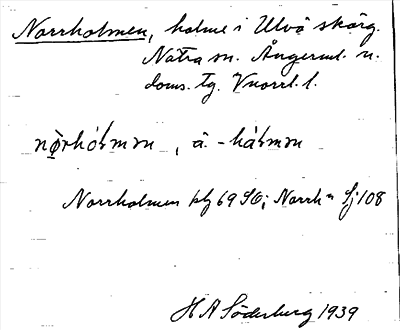 Norrholmen, holme i Ulvö skärg.
Nätra sn. Ångerml. n.
doms. tg. Vnorrl. l.
nǫ̀rhólmən, ä. -hálmən
Norrholmen blg 69 SO; Norrhⁿ Sj 108
H A Söderberg 1939